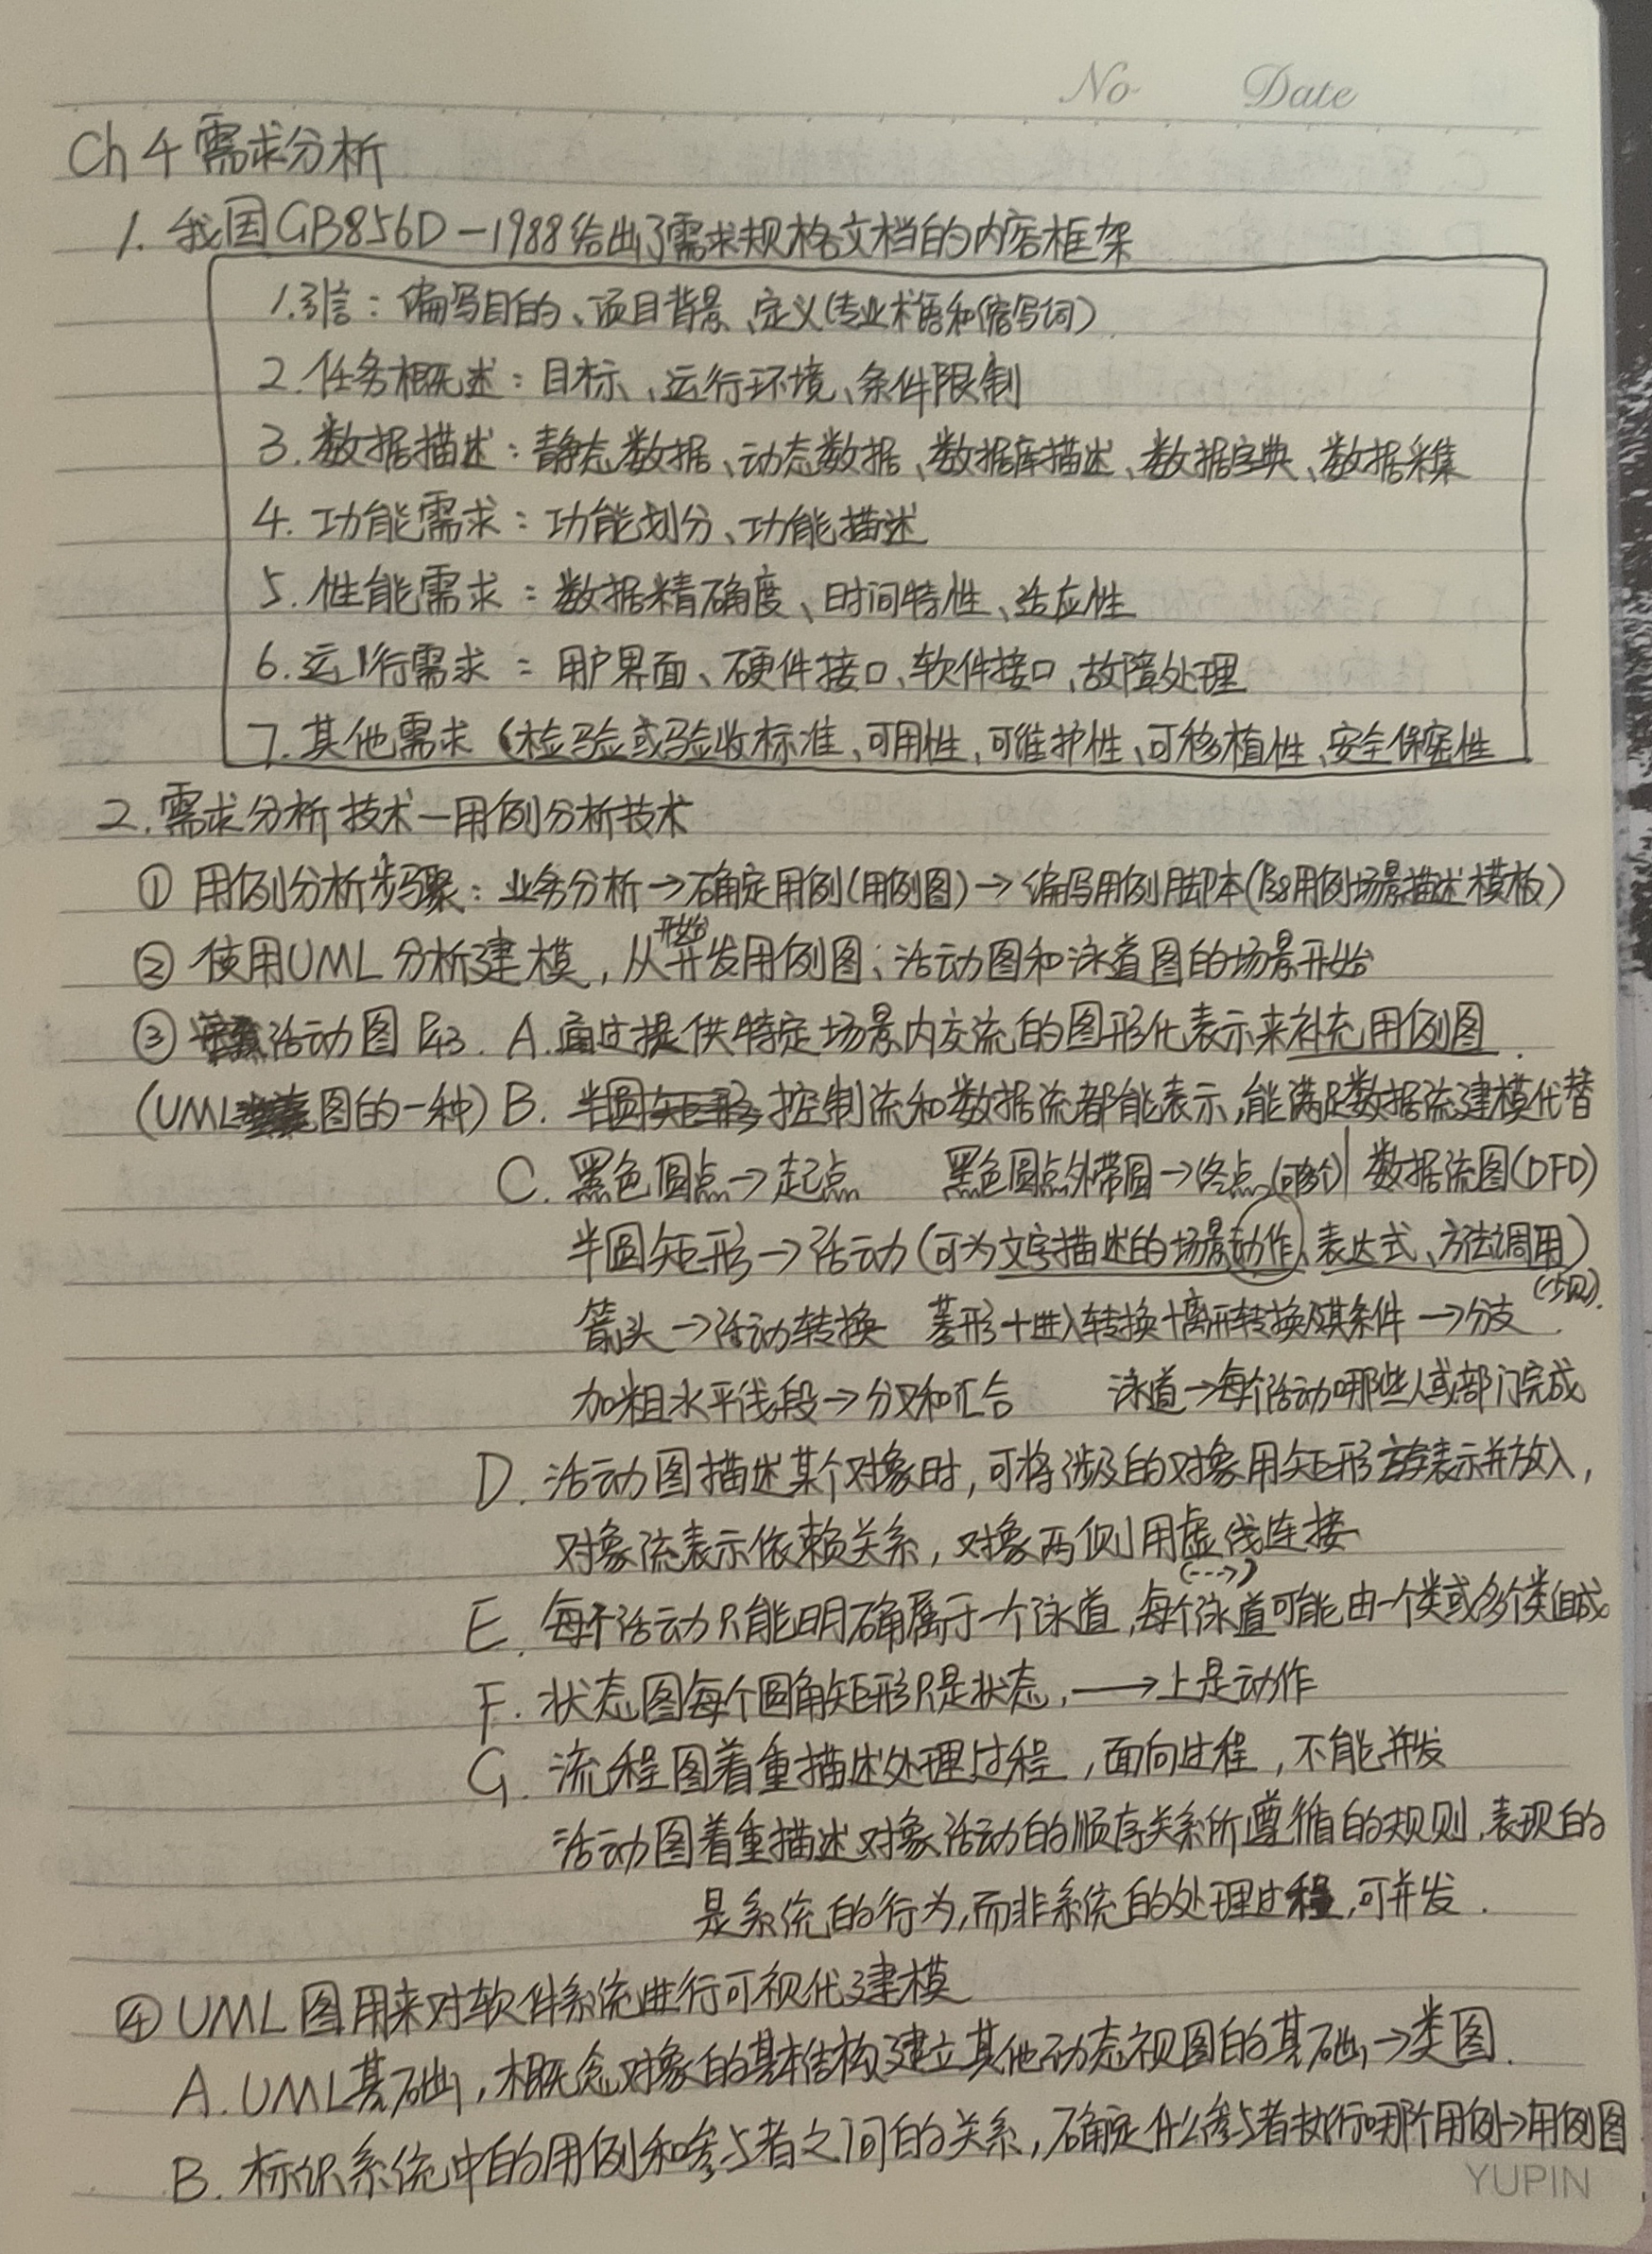 No Date
Ch 4 需求分析
1. 我国GB856D-1988给出了需求规格文档的内容框架
1.引言：编写目的、项目背景、定义(专业术语和缩写词)
2.任务概述：目标、运行环境、条件限制
3.数据描述：静态数据、动态数据、数据库描述、数据字典、数据采集
4.功能需求：功能划分、功能描述
5.性能需求：数据精确度、时间特性、适应性
6.运行需求：用户界面、硬件接口、软件接口、故障处理
7.其他需求(检验或验收标准、可用性、可维护性、可移植性、安全保密性
2.需求分析技术—用例分析技术
① 用例分析步骤：业务分析→确定用例(用例图)→编写用例脚本(P38用例场景描述模板)
② 使用UML分析建模，从开始开发用例图、活动图和泳道图的场景开始
③ 活动图 P43. A.通过提供特定场景内交流的图形化表示来补充用例图.
(UML图的一种) B. 控制流和数据流都能表示,能满足数据流建模代替
C. 黑色圆点→起点 黑色圆点外带圆→终点(可多个) 数据流图(DFD)
半圆矩形→活动(可为文字描述的场景动作、表达式、方法调用)
箭头→活动转换 菱形+进入转换+离开转换及其条件→分支.
加粗水平线段→分叉和汇合 泳道→每个活动哪些人或部门完成
D. 活动图描述某个对象时,可将涉及的对象用矩形表示并放入,
对象流表示依赖关系,对象两侧用虚线连接
(--->)
E. 每个活动只能明确属于一个泳道,每个泳道可能由一个类或多个类组成
F. 状态图每个圆角矩形只是状态,——→上是动作
G. 流程图着重描述处理过程,面向过程,不能并发
活动图着重描述对象活动的顺序关系所遵循的规则,表现的
是系统的行为,而非系统的处理过程,可并发.
④ UML图用来对软件系统进行可视化建模
A.UML基础,概念对象的基本结构建立其他动态视图的基础→类图.
B.标识系统中的用例和参与者之间的关系,确定什么参与者执行哪个用例→用例图
YUPIN